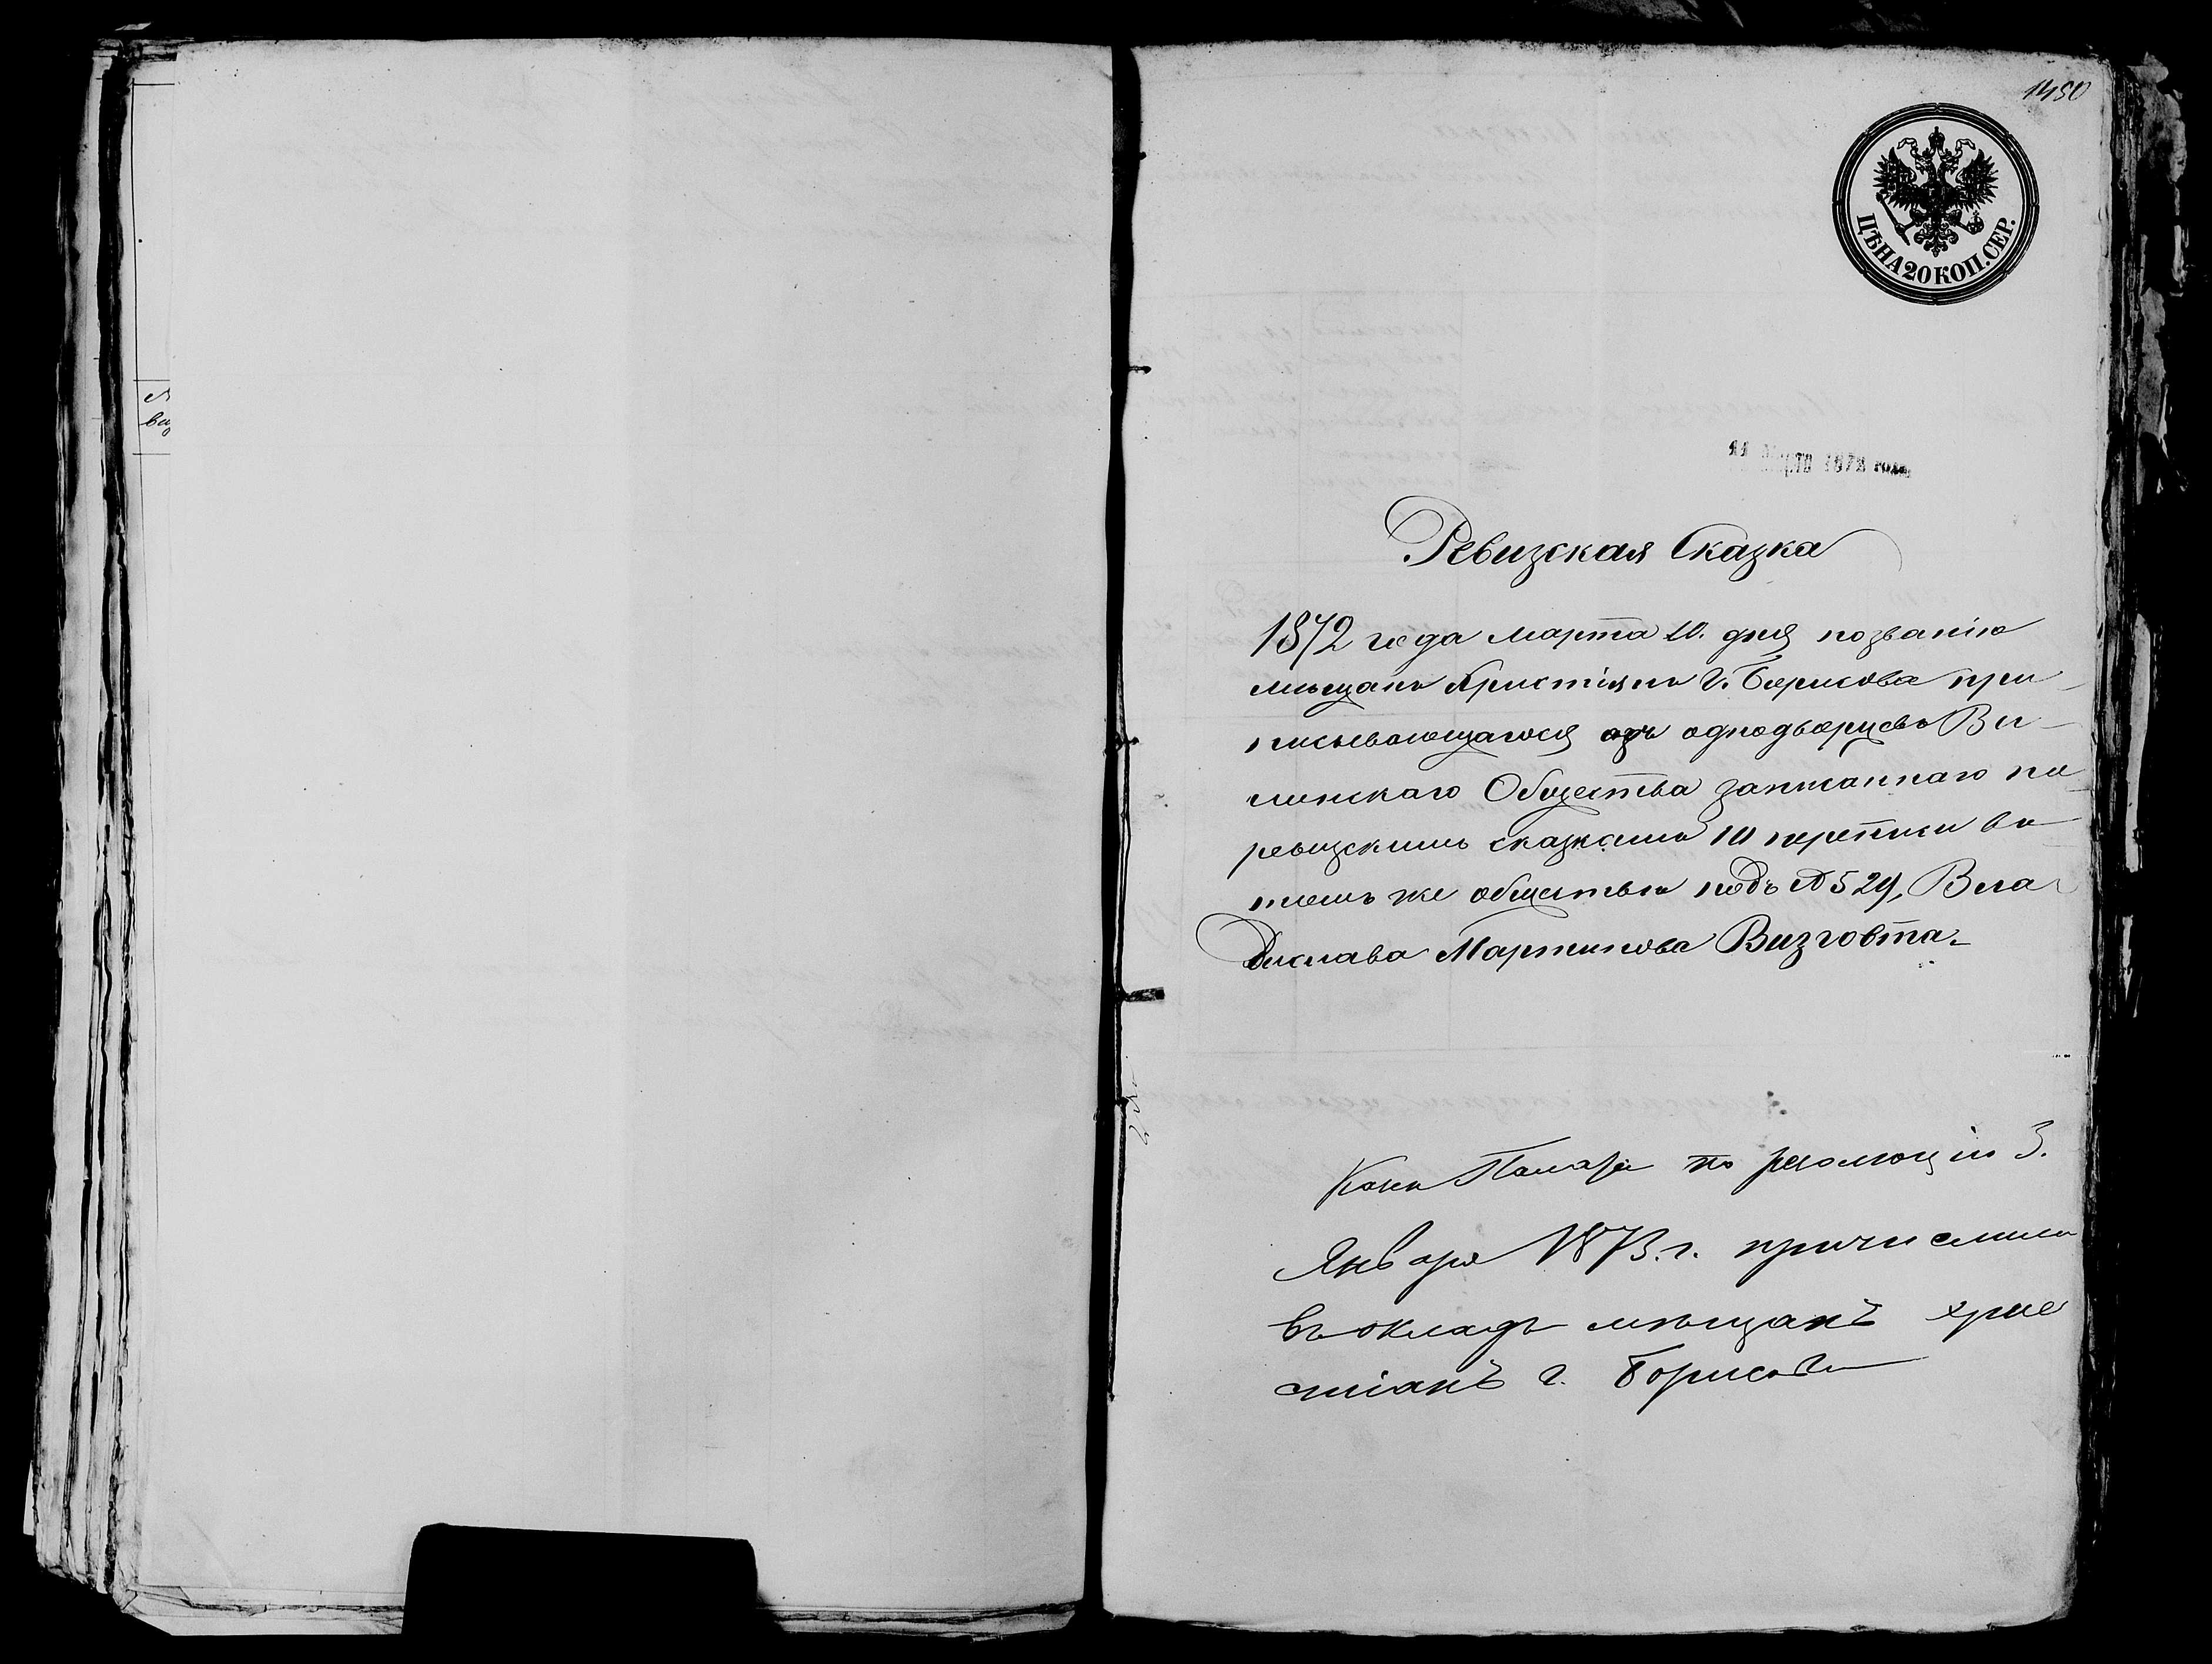 1450
ЦѢНА 20 КОП. СЕР.
11 Марта 1872 года
Ревизская Сказка
1872 года Марта 10. дня по званію
мѣщанъ Христіянъ г. Борисова при-
писывающагося изъ однодворцевъ Ви-
линскаго Общества записаннаго по
ревизскимъ сказкамъ 10 переписи въ
томъ же обществѣ подъ № 529, Вла-
дислава Мартинова Визговта.
Каз. Палата по резолюціи 3.
Января 1873. г. причислила
въ окладъ мѣщанъ хрис
тіанъ г. Борисова